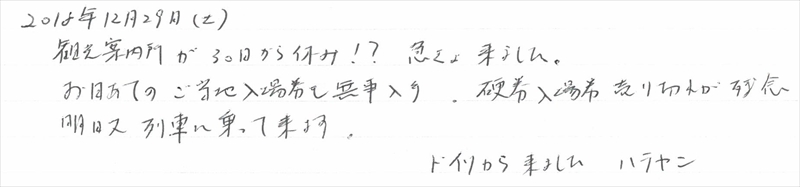 2018年12月29日(土)
観光案内所が30日から休み!? 急きょ来ました。
お目あてのご当地入場券も無事入手。硬券入場券売り切れが残念
明日又列車に乗って来ます。
ドイツから来ました ハラヤン